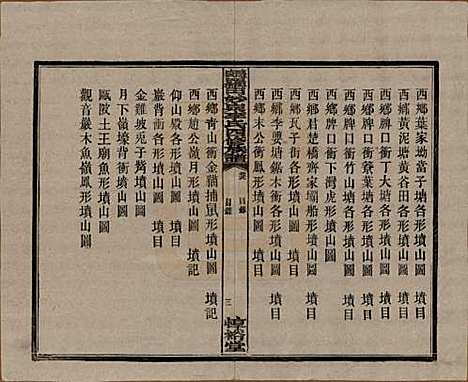 西鄉葉家坳富子塘各形墳山圖 墳目
西鄉黃泥塘黃谷田各形墳山圖 墳目
西鄉牌口衝丁大塘各形墳山圖 墳目
西鄉牌口衝寮葉塘各形墳山圖 墳目
西鄉牌口衝竹山塘各形墳山圖 墳目
西鄉牌口衝下灣虎形墳山圖
西鄉君楚橋齊家塌船形墳山圖 墳目
西鄉氏子衝各形墳山圖 墳目
西鄉李婆塘鋸木衝各形墳山圖 墳目
西鄉末公衝鳳形墳山圖 墳目
目錄
三
惇裕堂
西鄉青山衝金貓捕鼠形墳山圖 墳記
西鄉趙公嶺月形墳山圖 墳記
仰山殿各形墳山圖 墳目
巖背衝各形墳山圖 墳目
金雞坡兎子形墳山圖
月下嶺壕背衝墳山圖
陂頭土王廟魚形墳山圖
觀音嚴木魚嶺鳳形墳山圖